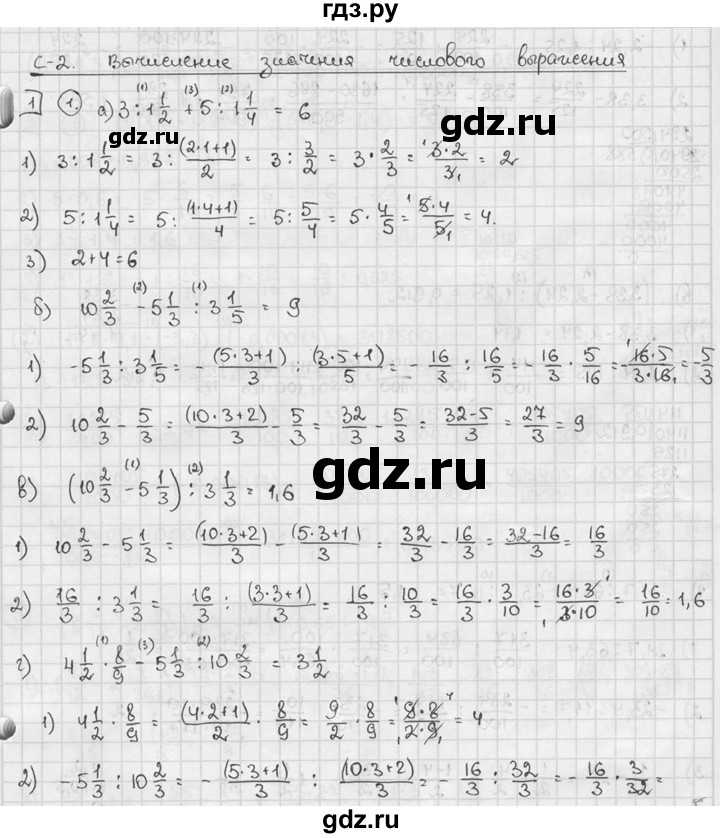 гдз.ру
С-2. Вычисление значения числового выражения
1 1. а) 3 :⁽¹⁾ 1 1/2 +⁽³⁾ 5 :⁽²⁾ 1 1/4 = 6
1) 3 : 1 1/2 = 3 : (2·1+1)/2 = 3 : 3/2 = 3 · 2/3 = 3·2/3 = 2
2) 5 : 1 1/4 = 5 : (1·4+1)/4 = 5 : 5/4 = 5 · 4/5 = 5·4/5 = 4.
3) 2+4=6
б) 10 2/3 −⁽²⁾ 5 1/3 :⁽¹⁾ 3 1/5 = 9
1) −5 1/3 : 3 1/5 = − (5·3+1)/3 : (3·5+1)/5 = − 16/3 : 16/5 = − 16/3 · 5/16 = − 16·5/3·16 = −5/3
2) 10 2/3 − 5/3 = (10·3+2)/3 − 5/3 = 32/3 − 5/3 = 32−5/3 = 27/3 = 9
в) (10 2/3 −⁽¹⁾ 5 1/3) :⁽²⁾ 3 1/3 = 1,6
1) 10 2/3 − 5 1/3 = (10·3+2)/3 − (5·3+1)/3 = 32/3 − 16/3 = 32−16/3 = 16/3
2) 16/3 : 3 1/3 = 16/3 : (3·3+1)/3 = 16/3 : 10/3 = 16/3 · 3/10 = 16·3/3·10 = 16/10 = 1,6
г) 4 1/2 ·⁽¹⁾ 8/9 −⁽³⁾ 5 1/3 :⁽²⁾ 10 2/3 = 3 1/2
1) 4 1/2 · 8/9 = (4·2+1)/2 · 8/9 = 9/2 · 8/9 = 9·8/2·9 = 4
2) −5 1/3 : 10 2/3 = − (5·3+1)/3 : (10·3+2)/3 = − 16/3 : 32/3 = − 16/3 · 3/32 =
gdz.ru
gdz.ru
gdz.ru
gdz.ru
gdz.ru
gdz.ru
gdz.ru
gdz.ru